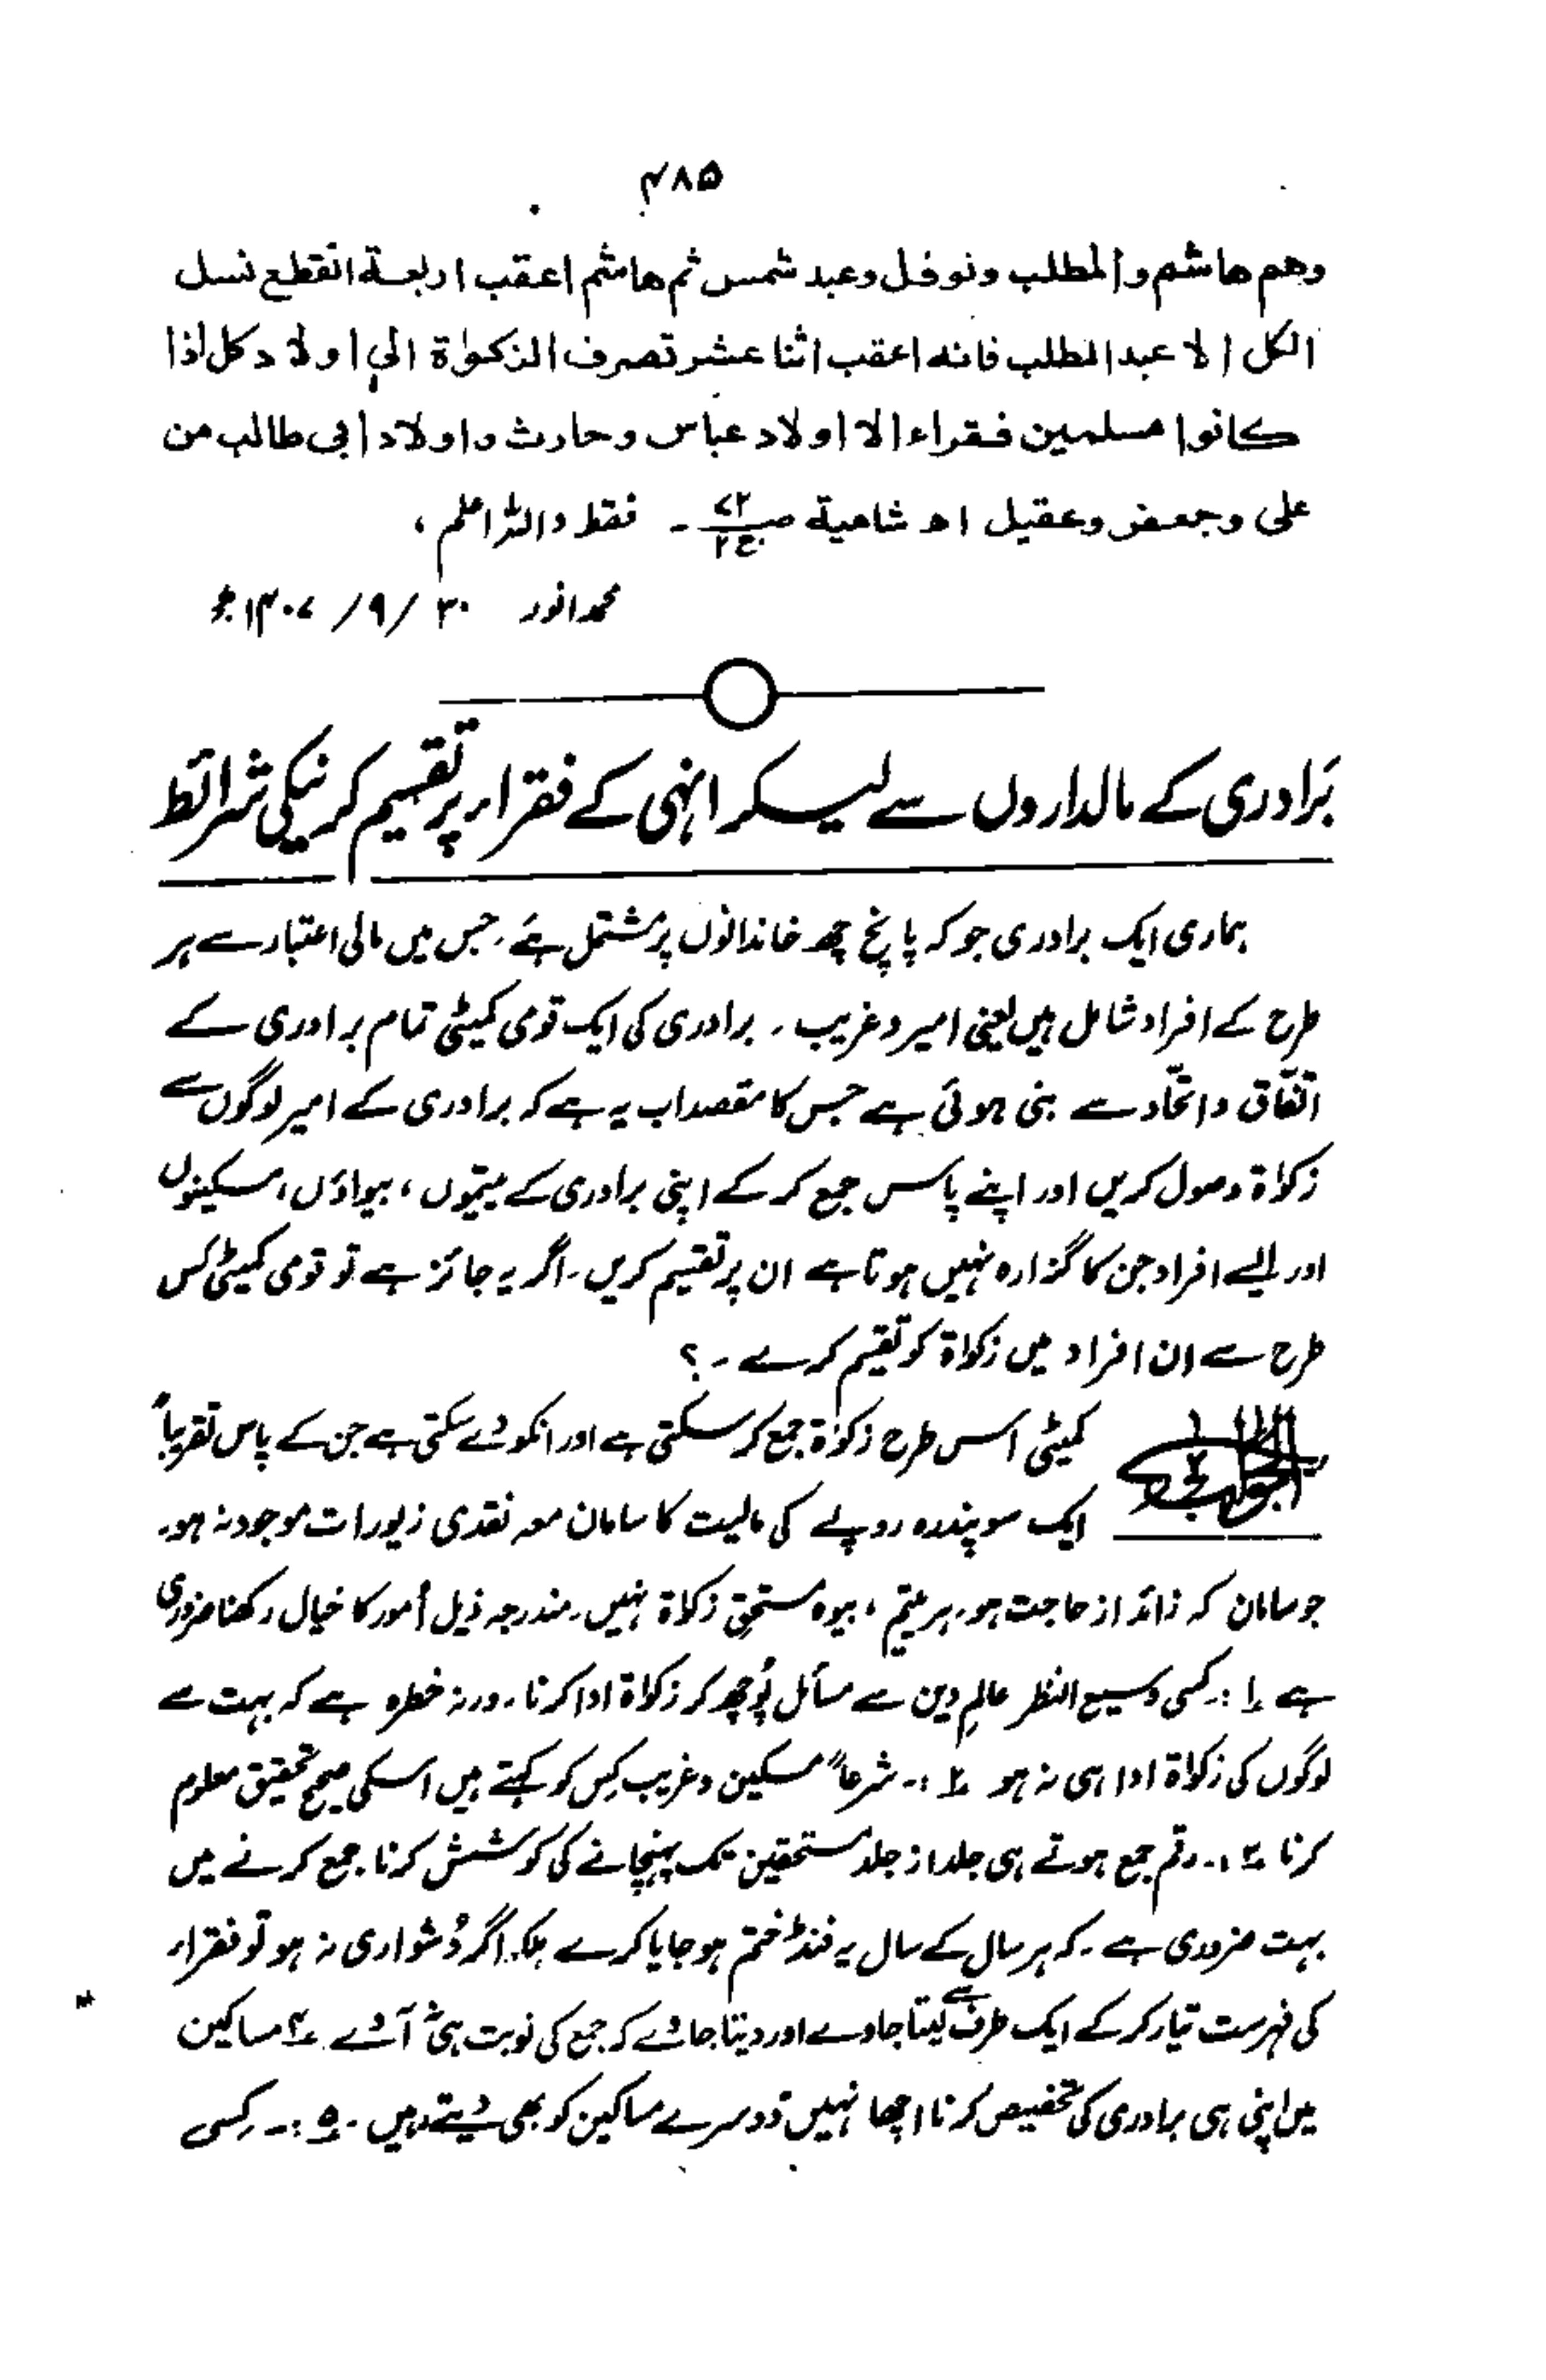 ۴۸۵
وهم هاشم والمطلب ونوفل وعبد شمس ثم هاشم اعقب اربعة انقطع نسل
الكل الا عبد المطلب فانه اعقب اثنا عشر تصرف الزكواة الى اولاد كل اذا
كانوا مسلمين فقراء الا اولاد عباس وحارث واولاد ابي طالب من
على وجعفر وعقيل اھ شامية ص۷۲ ج۲ ۔ فقط واللہ اعلم ،
محمد انور ۳۰ /۹/ ۱۴۰۷ھ
برادری کے مالداروں سے لیکر انہی کے فقراء پر تقسیم کرنیکی شرائط
ہماری ایک برادری جو کہ پانچ چھ خاندانوں پر مشتمل ہے ، جس میں مالی اعتبار سے ہر
طرح کے افراد شامل ہیں یعنی امیر و غریب ۔ برادری کی ایک قومی کمیٹی تمام برادری کے
اتفاق و اتحاد سے بنی ہوئی ہے جس کا مقصد اب یہ ہے کہ برادری کے امیر لوگوں سے
زکواۃ وصول کریں اور اپنے پاس جمع کر کے اپنی برادری کے یتیموں ، بیواؤں ، مسکینوں
اور ایسے افراد جن کا گزارہ نہیں ہوتا ہے ان پر تقسیم کریں ۔ اگر یہ جائز ہے تو قومی کمیٹی کس
طرح سے ان افراد میں زکواۃ کو تقسیم کرے ۔ ؟
الجواب کمیٹی اس طرح زکوٰۃ جمع کر سکتی ہے اور انکو دے سکتی ہے جن کے پاس تقریباً
ایک سو پندہ روپے کی مالیت کا سامان معہ نقدی زیورات موجود نہ ہو۔
جو سامان کہ زائد از حاجت ہو۔ ہر یتیم ، بیوہ مستحق زکاۃ نہیں ۔ مندرجہ ذیل اُمور کا خیال رکھنا ضروری
ہے ۱ :۔ کسی وسیع النظر عالم دین سے مسائل پُوچھ کر زکواۃ ادا کرنا ۔ ورنہ خطرہ ہے کہ بہت سے
لوگوں کی زکواۃ ادا ہی نہ ہو ۲ :۔ شرعاً مسکین و غریب کِس کو کہتے ہیں اسکی صحیح تحقیق معلوم
کرنا ۳ :۔ رقم جمع ہوتے ہی جلد از جلد مستحقین تک پہنچانے کی کوشش کرنا ۔ جمع کرنے میں
بہت ضروری ہے ۔ کہ ہر سال کے سال یہ فنڈ ختم ہو جایا کرے بلکہ اگر دُشواری نہ ہو تو فقراء
کی فہرست تیار کر کے ایک طرف سے لیتا جاوے اور دیتا جائے کہ جمع کی نوبت ہی نہ آئے ۔ ۴ مساکین
میں اپنی ہی برادری کی تخصیص کرنا اچھا نہیں دوسرے مساکین کو بھی دیتے رہیں ۔ ۵ :۔ کِسی